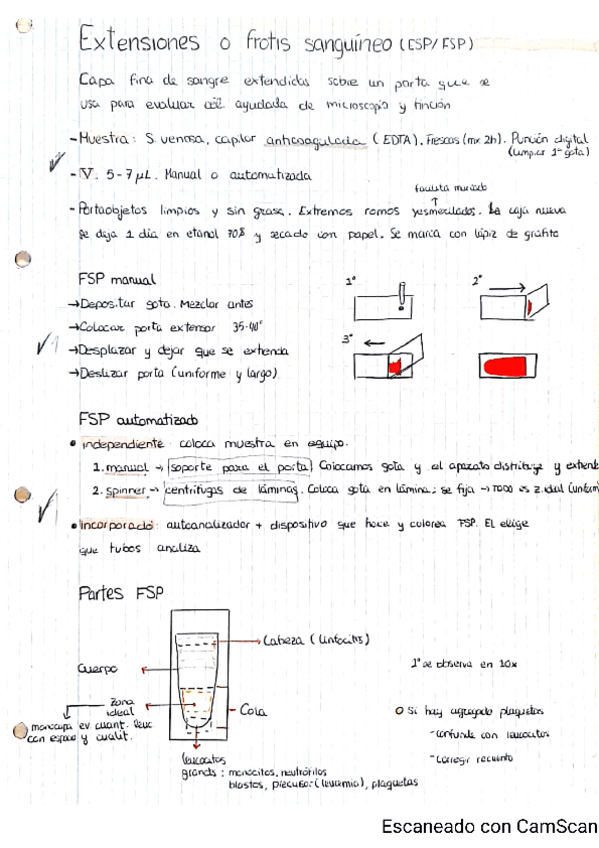 Extensiones o frotis sanguíneo (ESP/FSP)
Capa fina de sangre extendida sobre un porta que se
usa para evaluar cél ayudada de microscopio y tinción
- Muestra: S. venosa, capilar anticoagulada (EDTA). Frescas (mx 2h). Punción digital
(limpiar 1ª gota)
- V. 5-7 µL. Manual o automatizada
- Portaobjetos limpios y sin grasa. Extremos romos y esmerilados. La caja nueva
se deja 1 día en etanol 70% y secado con papel. Se marca con lápiz de grafito
FSP manual
→ Depositar gota. Mezclar antes
→ Colocar porta extensor 35-40°
→ Desplazar y dejar que se extienda
→ Deslizar porta (uniforme y largo)
1º
2º
3º
FSP automatizado
• independiente: coloca muestra en equipo.
1. manual → soporte para el porta) Colocamos gota y el aparato distribuye y extiende
2. spinner → centrífugas de láminas. Coloca gota en lámina; se fija → TODO es z. ideal (uniform
• incorporado: autoanalizador + dispositivo que hace y colorea FSP. El elige
que tubos analiza
Partes FSP
Cabeza (linfocitos)
Cuerpo
1º se observa en 10x
zona
ideal
Cola
monocapa
con espacio
ev cuant. leuc
y cualit.
Si hay agregado plaquetas
- confunde con leucocitos
- corregir recuento
leucocitos
grands: monocitos, neutrófilos
blastos, precursor (leucemia), plaquetas
Escaneado con CamScan